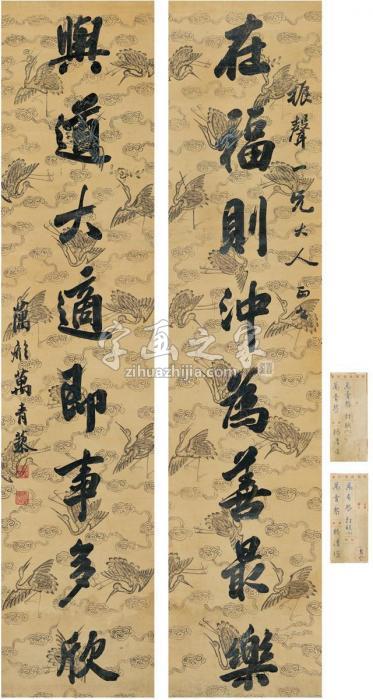 振聲一兄大人正之
在福則沖為善最樂
與道大適即事多欣
藕舲萬青藜
字画之家
zihuazhijia.com